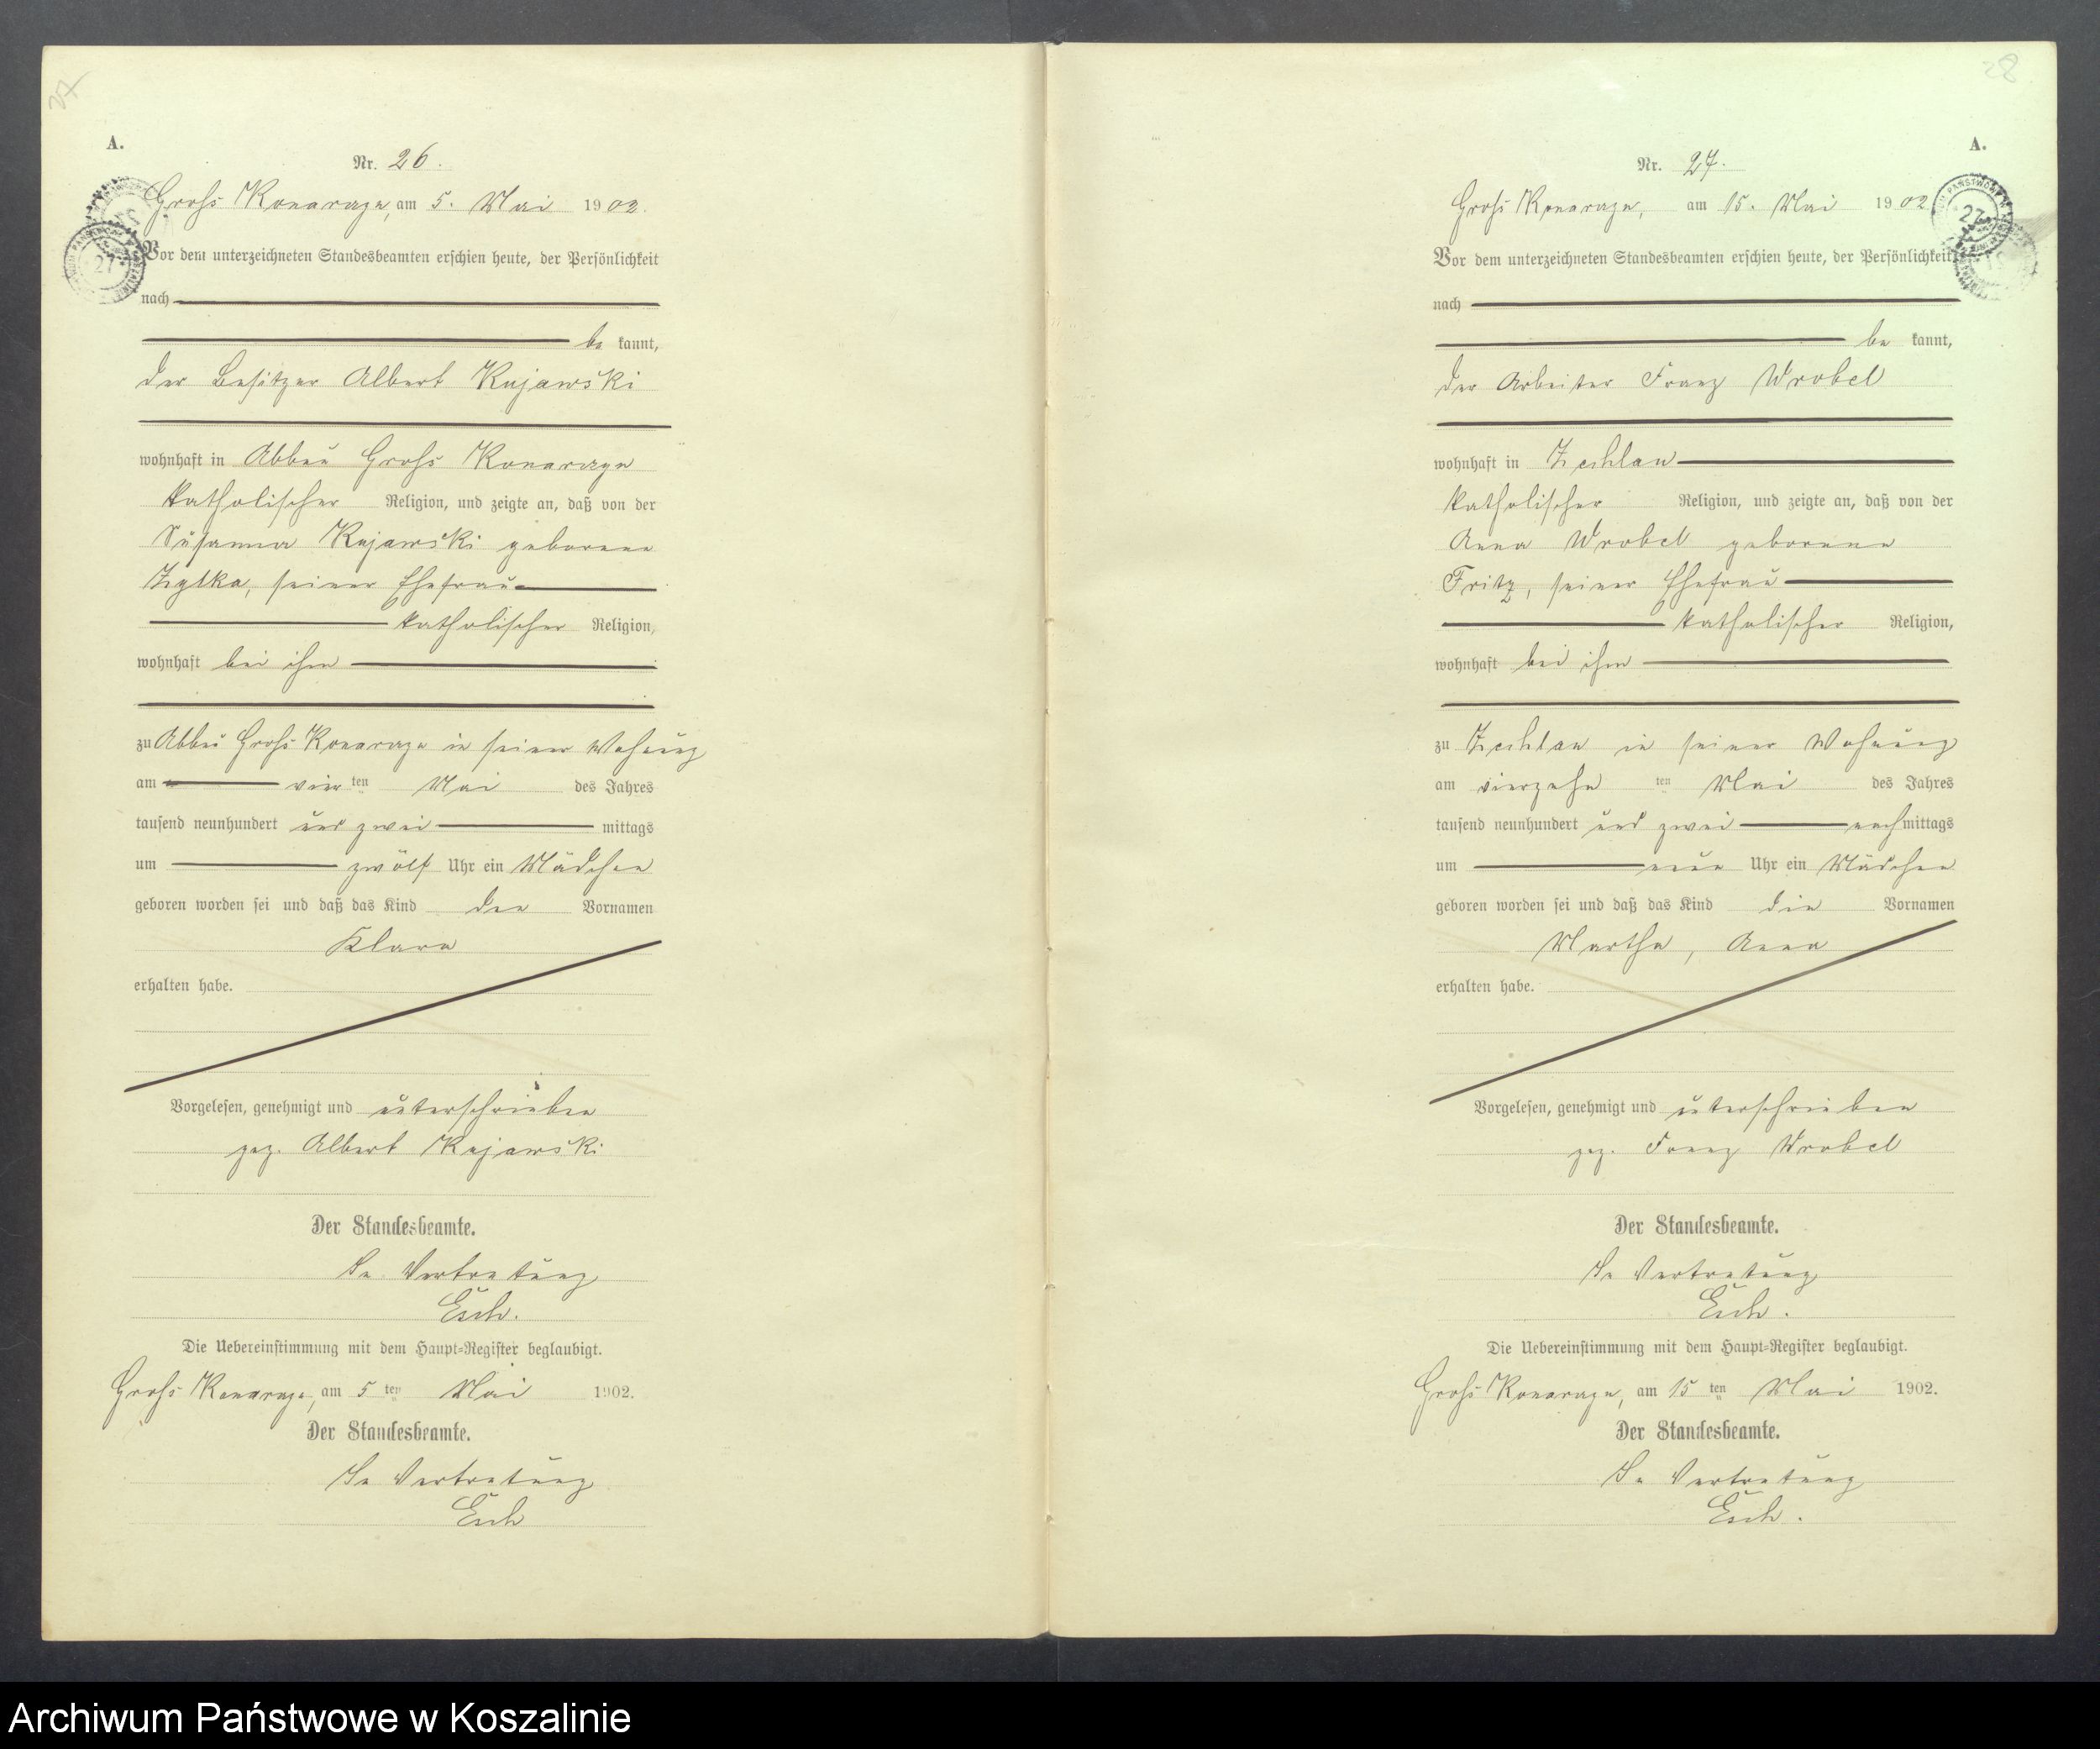 27
A.
Nr. 26.
Gross Konarzyn, am 5. Mai 1902.
Vor dem unterzeichneten Standesbeamten erschien heute, der Persönlichkeit
nach
be kannt,
der Besitzer Albert Kujawski
wohnhaft in Abbau Gross Konarzyn
katholischer Religion, und zeigte an, daß von der
Susanna Kujawski geborene
Zytka, seiner Ehefrau
katholischer Religion,
wohnhaft bei ihm
zu Abbau Gross Konarzyn in seiner Wohnung
am vier ten Mai des Jahres
tausend neunhundert und zwei mittags
um zwölf Uhr ein Mädchen
geboren worden sei und daß das Kind den Vornamen
Klara
erhalten habe.
Vorgelesen, genehmigt und unterschrieben
gez. Albert Kujawski
Der Standesbeamte.
In Vertretung
Esch.
Die Uebereinstimmung mit dem Haupt-Register beglaubigt.
Gross Konarzyn, am 5 ten Mai 1902.
Der Standesbeamte.
In Vertretung
Esch
28
A.
Nr. 27.
27
Gross Konarzyn, am 15. Mai 1902
Vor dem unterzeichneten Standesbeamten erschien heute, der Persönlichkeit
nach
be kannt,
der Arbeiter Franz Wrobel
wohnhaft in Zechlau
katholischer Religion, und zeigte an, daß von der
Anna Wrobel geborene
Fritz, seiner Ehefrau
katholischer Religion,
wohnhaft bei ihm
zu Zechlau in seiner Wohnung
am vierzehn ten Mai des Jahres
tausend neunhundert und zwei nachmittags
um neun Uhr ein Mädchen
geboren worden sei und daß das Kind die Vornamen
Martha, Anna
erhalten habe.
Vorgelesen, genehmigt und unterschrieben
gez. Franz Wrobel
Der Standesbeamte.
In Vertretung
Esch.
Die Uebereinstimmung mit dem Haupt-Register beglaubigt.
Gross Konarzyn, am 15 ten Mai 1902.
Der Standesbeamte.
In Vertretung
Esch.
Archiwum Państwowe w Koszalinie